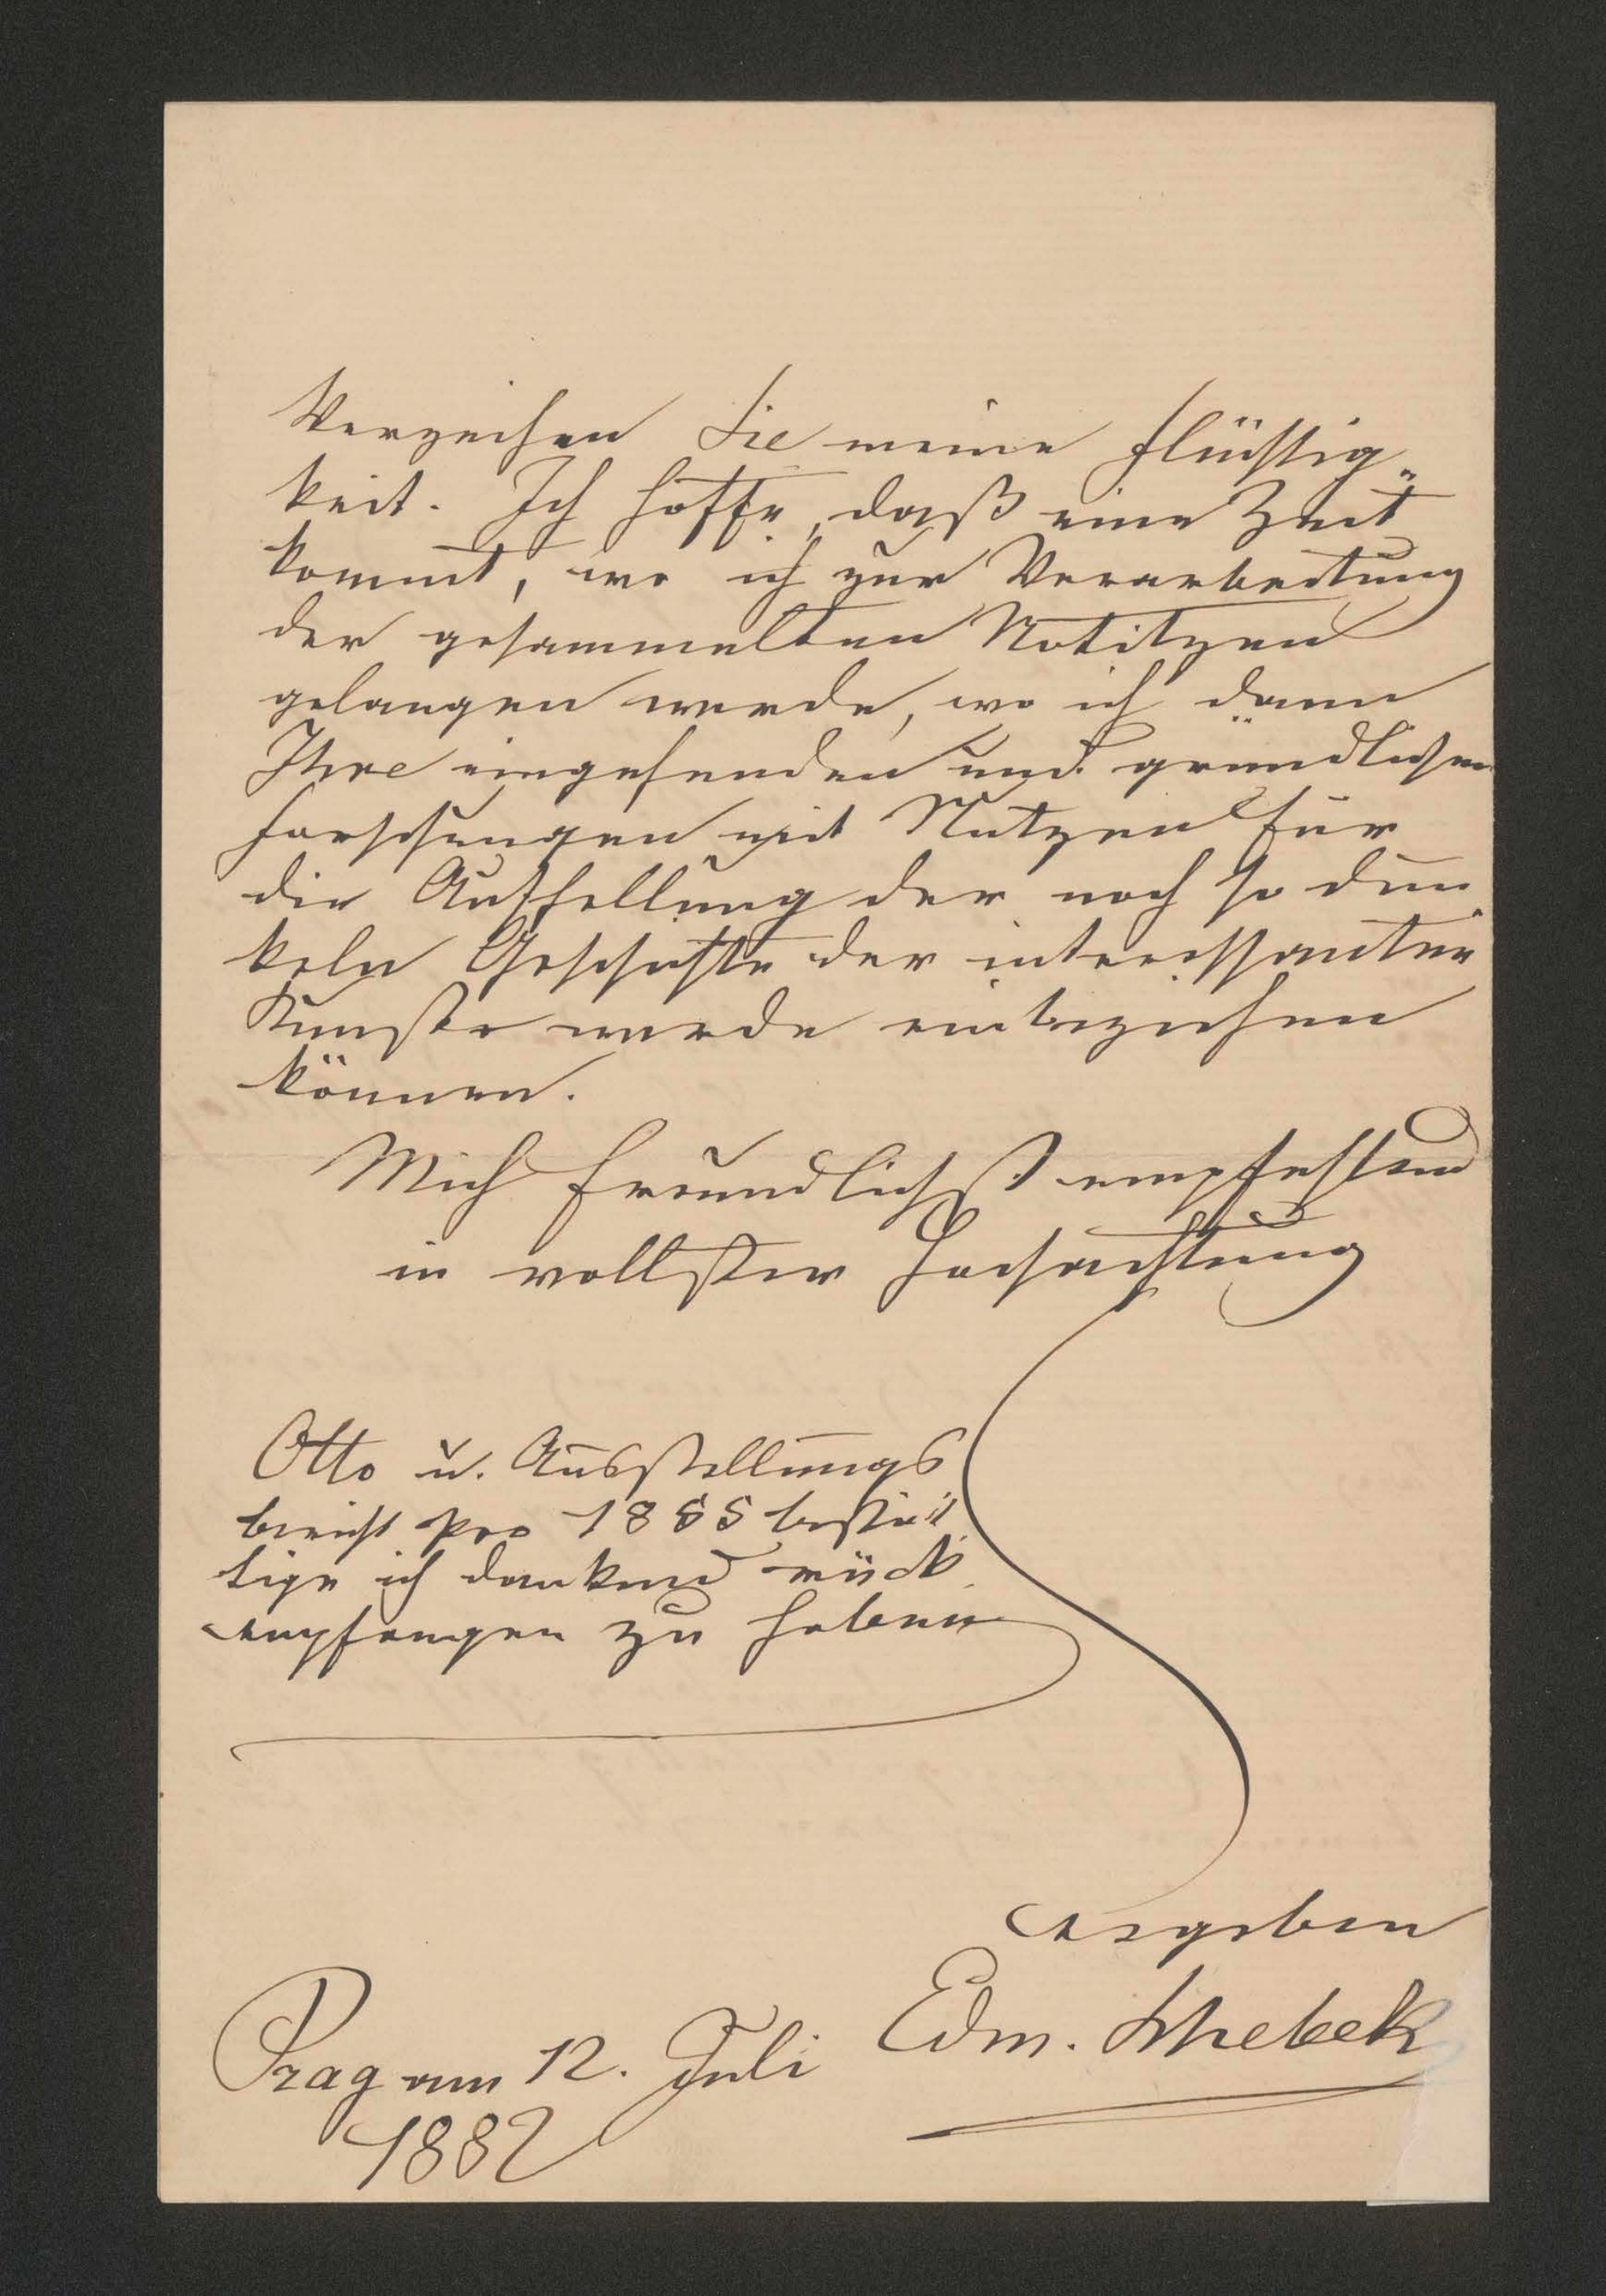 Verzeihen Sie meine Flüchtig„
keit. Ich hoffe, daß eine Zeit
kommt, wo ich zur Verarbeitung
der gesammelten Notitzen
gelangen werde, wo ich dann
Ihre eingehenden und gründlichen
Forschungen mit Nutzen für
die Aufhellung der noch so dun„
keln Geschichte der interessanten
Kunst werde einbeziehen
können.
Mich freundlichst empfehlend
in vollster Hochachtung
Otto u. Ausstellungs
bericht pro 1885 bestät„
tige ich dankend rück„
empfangen zu haben
ergeben
Edm. Schebek
Prag am 12. Juli
1882